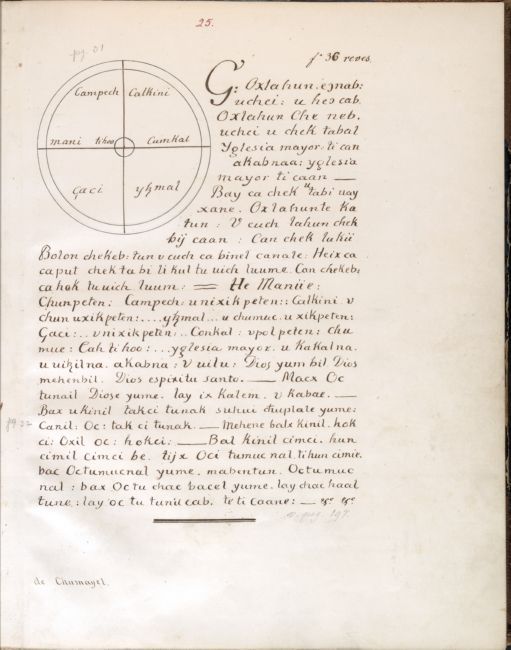 25.
pg. 01
f.º 36 reves.
Campech Calkini
mani tihoo Cumkal
Çaci yꜧmal
G: Oxlahun. eɔnab:
uchci: u heɔ cab.
Oxlahun Che neb.
uchci u chek tabal
Yglesia mayor: ti can
akabnaa: yglesia
mayor ti caan —
Bay ca chek tabi uay
xane. Oxlahunte Ka
tun: V cuch lahun chek
bij caan: Can chek lukii
Bolon chekeb: tun u cuch ca binel canale: Heix ca
ca put chek ta bi li kul tu uich luume. Can chekeb:
ca hok tu uich luum: = He Maniie:
Chunpeten: Campech: u nixik peten:: Calkini. v
chun uxikpeten:.... yꜧmal... u chumuc. u xikpeten:
Çaci:.. v nixikpeten:.. Conkal: vpol peten: chu
mue: Cah ti hoo:... yglesia mayor. u Kakalna.
u uiꜧilna. akabna: v uilu: Dios yum bil Dios
mehenbil. Dios espiritu santo. — Macx Oc
tunail Diose yume. lay ix Kalem. v kabae. —
Bax u kinil takci tunak suhui chuplale yume:
Canil: Oc: tak ci tunak. — Mehene balx kinil. hok
ci: Oxil oc: hokci: — Bal kinil cimci. hun
cimil cimci be. tijx Oci tumuc nal. ti hun cimie.
bac Octumucnal yume. mabentun. Octumuc
nal: bax Octu chac bacel yume. lay chac haal
tune,: lay oc tu tunil cab. te ti caane: —
pg 22
de Chumayel.